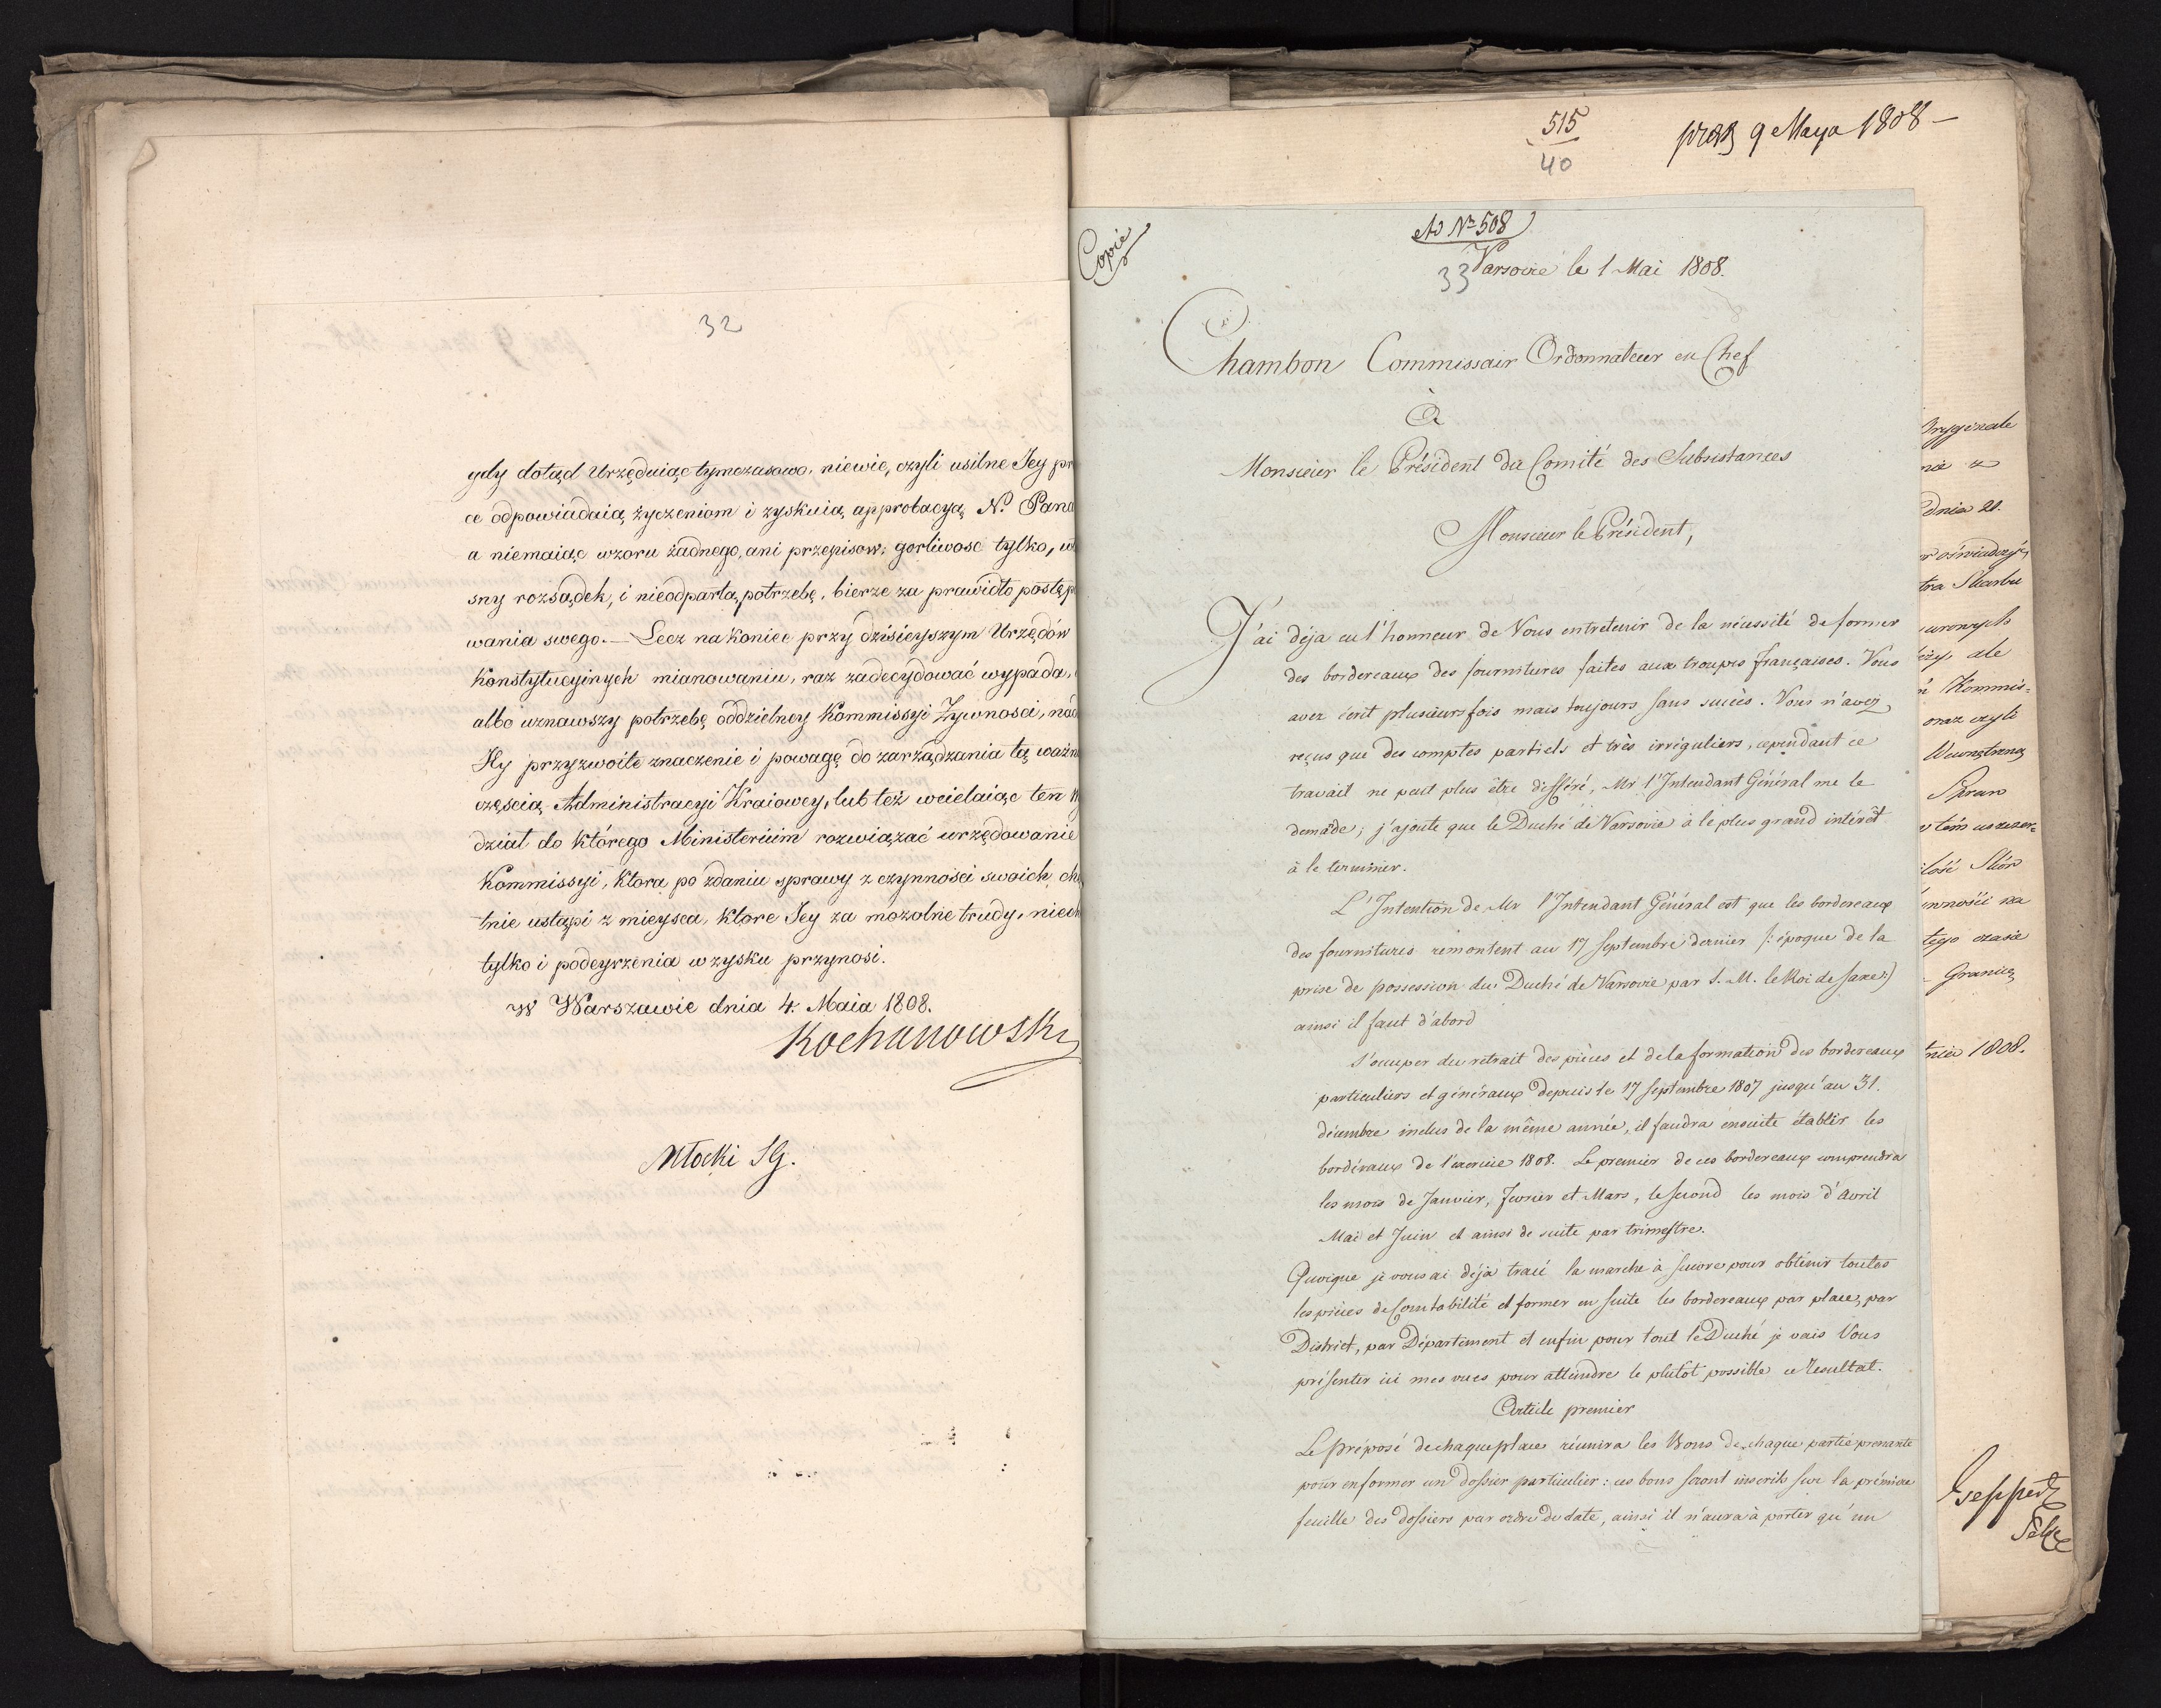 32
gdy dotąd Urzęduiąc tymczasowo, niewie, czyli usilne Jey pr
ce odpowiadaią życzeniom i zyskuią approbacyą N. Pana
a niemaiąc wzoru żadnego, ani przepisow, gorliwosc tylko, wł
sny rozsądek, i nieodpartą potrzebę, bierze za prawidło postęp
wania swego. — Lecz nakoniec przy dzisieyszym Urzędów
Konstytucyinych mianowaniu, raz zadecydować wypada,
albo uznawszy potrzebę oddzielney Kommissyi Żywnosci, nad
Jey przyzwoite znaczenie i powagę do zarządzania tą ważn
częscią Administracyi Kraiowey, lub też wcielaiąc ten W
dział do którego Ministerium rozwiązać urzędowanie
Kommissyi, ktora po zdaniu sprawy z czynności swoich, ch
tnie ustąpi z mieysca, ktore Jey za mozolne trudy, niech
tylko i podeyrzenia w zysku przynosi.
w Warszawie dnia 4. Maia 1808.
Kochanowski
Młocki SG.
515
40
praes 9 Maya 1808 —
Copie
Ad Nr 508
33
Varsovie le 1 Mai 1808.
Chambon Commissair Ordonnateur en Chef
à
Monsieur le Président du Comité des Subsistances
Monsieur le Président,
J'ai déja eu l'honneur de Vous entretenir de la nécessité de former
des bordereaux des fournitures faites aux troupes françaises. Vous
avez écrit plusieurs fois mais toujours sans succès. Vous n'avez
reçus que des comptes partiels et très irréguliers, cependant ce
travail ne peut plus être différé, Mr l'Intendant Général me le
demãde; j'ajoute que le Duché de Varsovie à le plus grand intérêt
à le terminer.
L'Intention de Mr l'Intendant Général est que les bordereaux
des fournitures remontent au 17 septembre dernier /: époque de la
prise de possession du Duché de Varsovie par S. M. le Roi de Saxe:)
ainsi il faut d'abord
s'occuper du retrait des pièces et de la formation des bordereaux
particuliers et généraux depuis le 17 septembre 1807 jusqu'au 31.
décembre inclus de la même année, il faudra ensuite établir les
bordéraux de l'exercice 1808. Le premier de ces bordereaux comprendra
les mois de Janvier, Fevrier et Mars, le second les mois d'Avril
Mai et Juin et ainsi de suite par trimestre.
Quoique je vous ai déja tracé la marche à suivre pour obtenir toutes
les pièces de Comtabilité et former en suite les bordereaux par place, par
District, par Département et enfin pour tout le Duché je vais Vous
présenter ici mes vues pour atteindre le plutôt possible ce resultat.
Article premier
Le préposé de chaque place réunira les Bons de chaque partie prenante
pour en former un dossier particulier: ces bons seront inscrits sur la prémiere
feuille des dossiers par ordre de date, ainsi il n'aura à porter qu'un
Oryginale
nia
dnia 21.
oświadczyć,
tra Skarbu
urowych
ale
Kommis=
oraz czyli
Wewnętrzney
Spraw
tém uszczer=
ilość Skór
wności na
tego czasie
Granicą
tnia 1808.